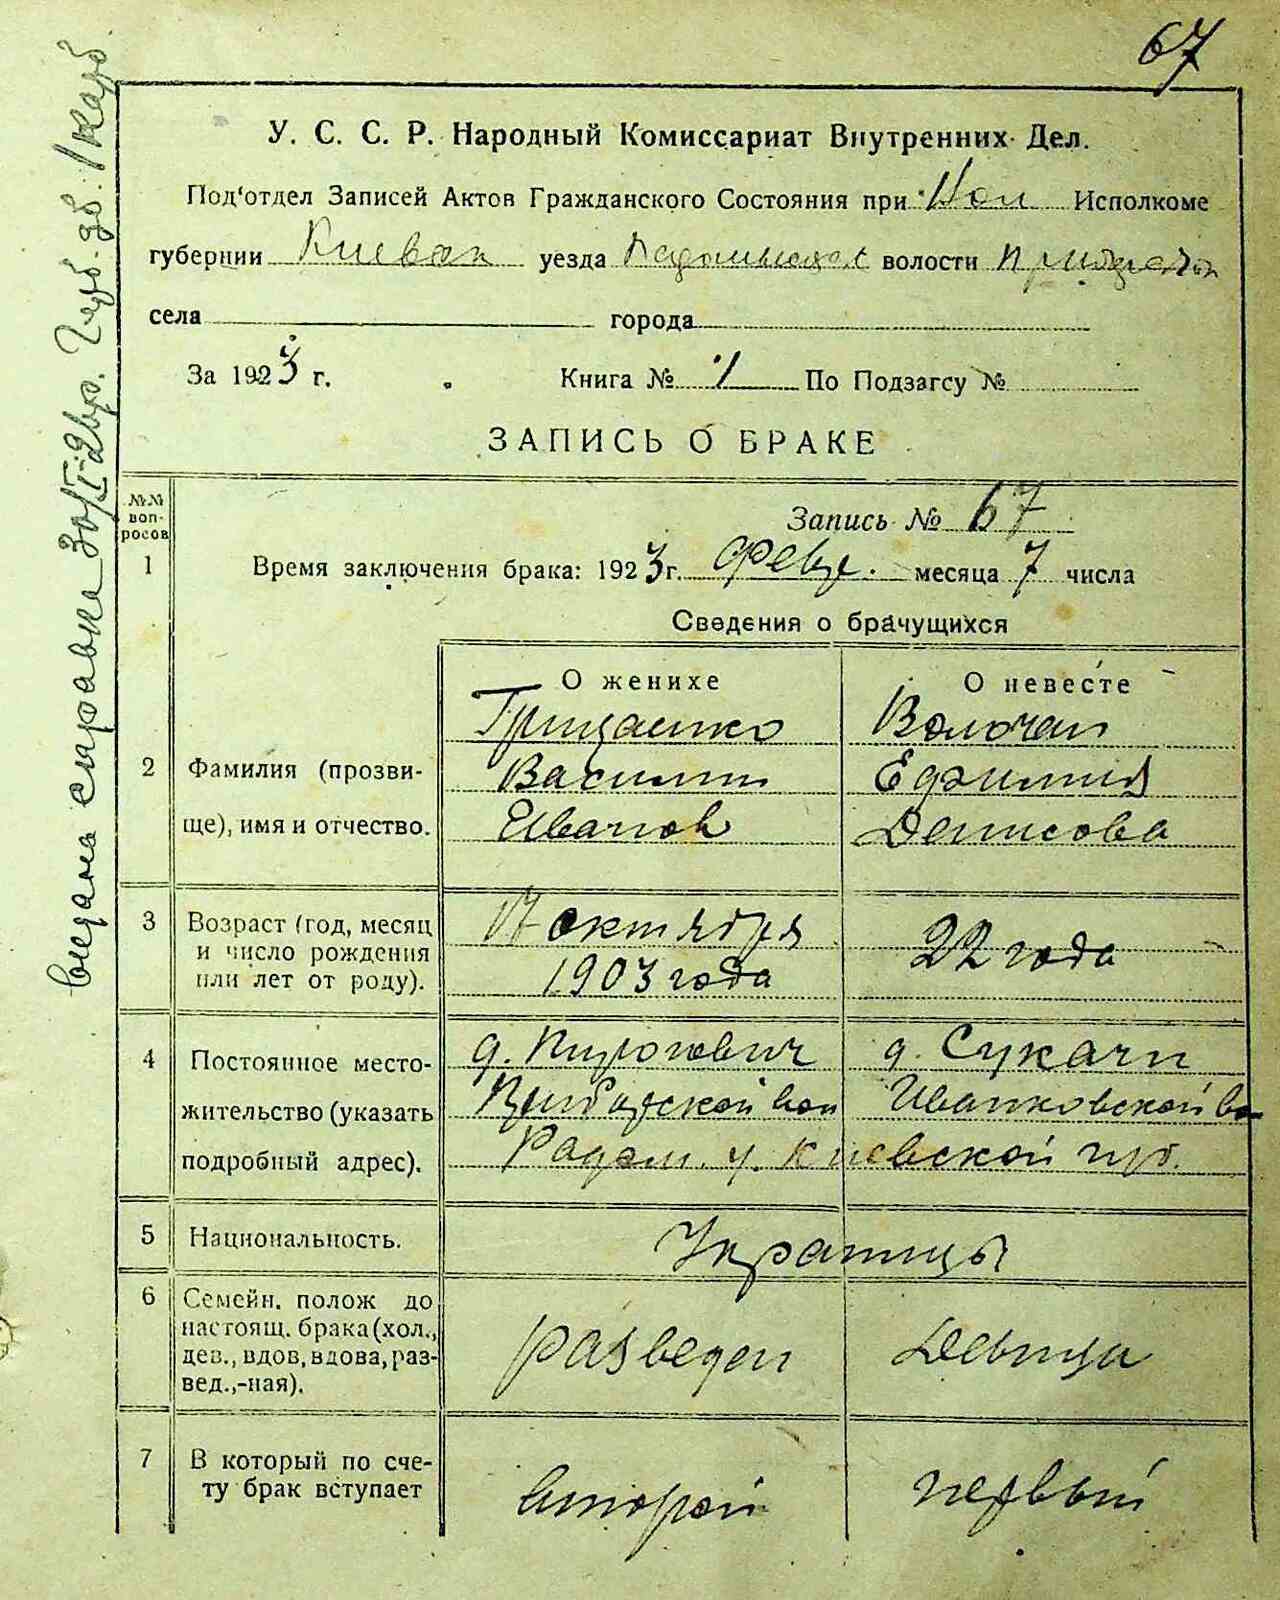 67
У. С. С. Р. Народный Комиссариат Внутренних Дел.
Под'отдел Записей Актов Гражданского Состояния при Вол Исполкоме
губернии Киевск уезда волости
села города
За 1923 г. Книга № 1 По Подзагсу №
ЗАПИСЬ О БРАКЕ
№№ вопросов
Запись № 67
1 Время заключения брака: 1923 г. Февр. месяца 7 числа
Сведения о брачущихся
О женихе О невесте
Грищенко Волочай
2 Фамилия (прозви- Василий Ефимия
ще), имя и отчество. Иванов Денисова
3 Возраст (год, месяц 17 октября
и число рождения 22 года
или лет от роду). 1903 года
4 Постоянное место- д. Пирогович д. Сукачи
жительство (указать вол Иванковской во
подробный адрес). Радом. у. Киевской губ.
5 Национальность. Украинцы
6 Семейн. полож до
настоящ. брака (хол.,
дев., вдов, вдова, раз- разведен девица
вед.,-ная).
7 В который по сче-
ту брак вступает второй первый
видана справка